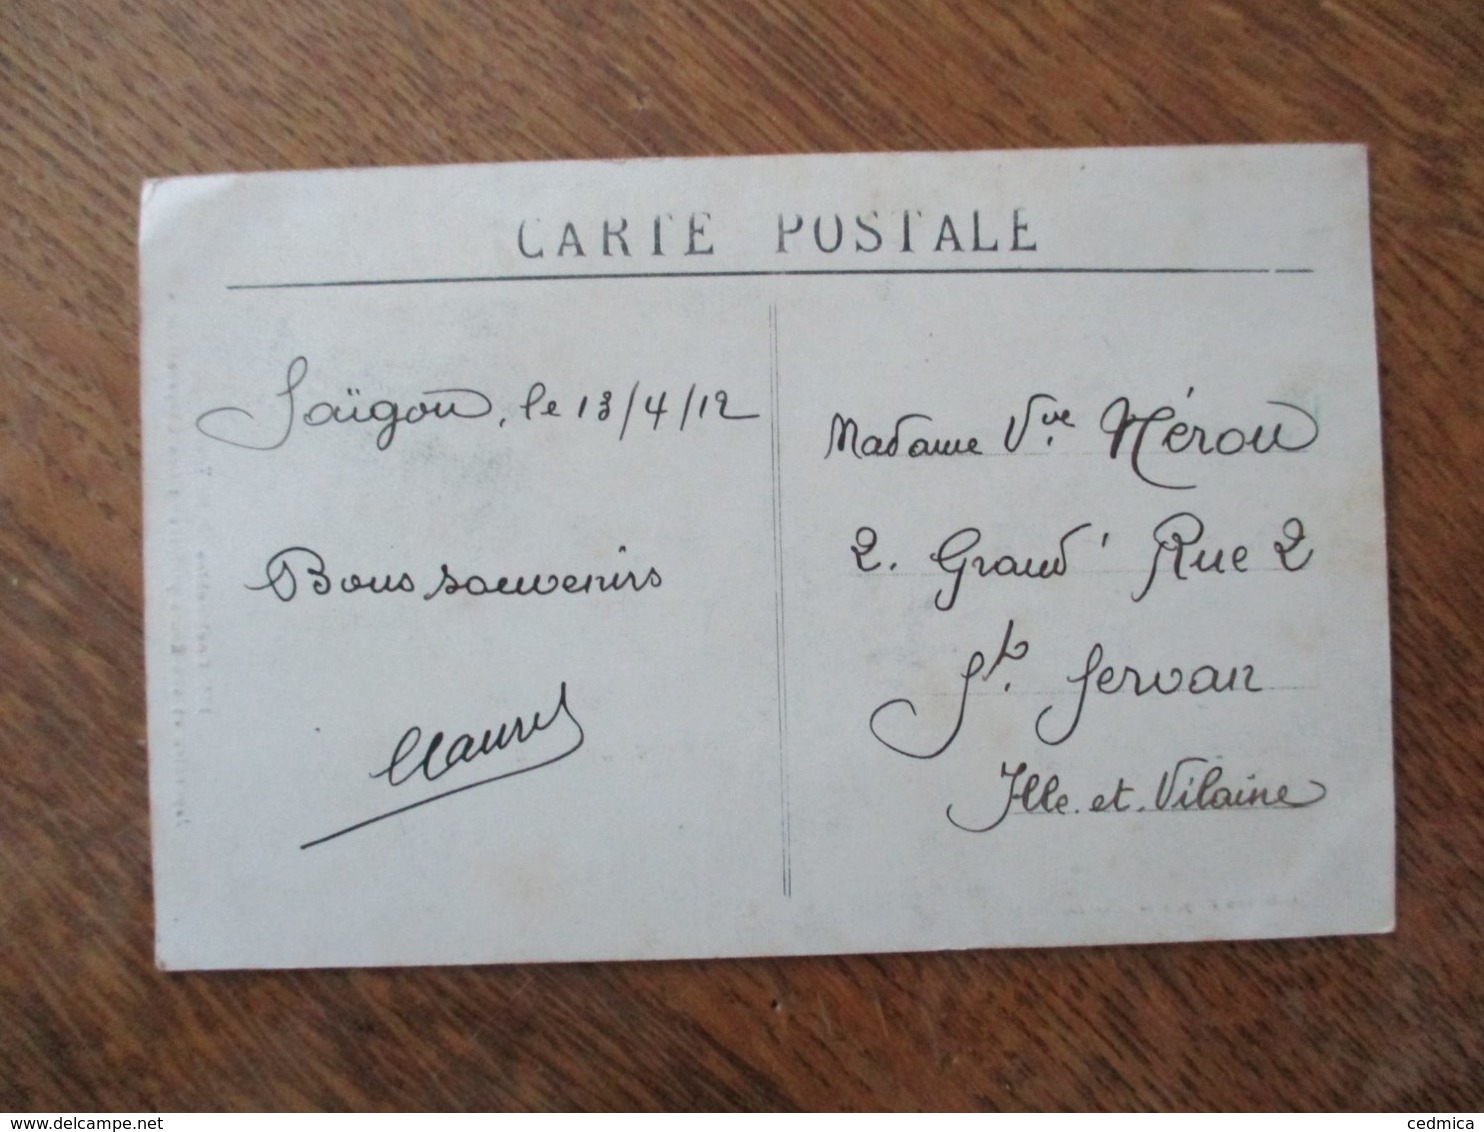 CARTE POSTALE
Saïgon, le 13/4/12
Bons souvenirs
Madame Vve Néron
2. Grand' Rue 2
St. Servan
Ille. et. Vilaine
cedmica